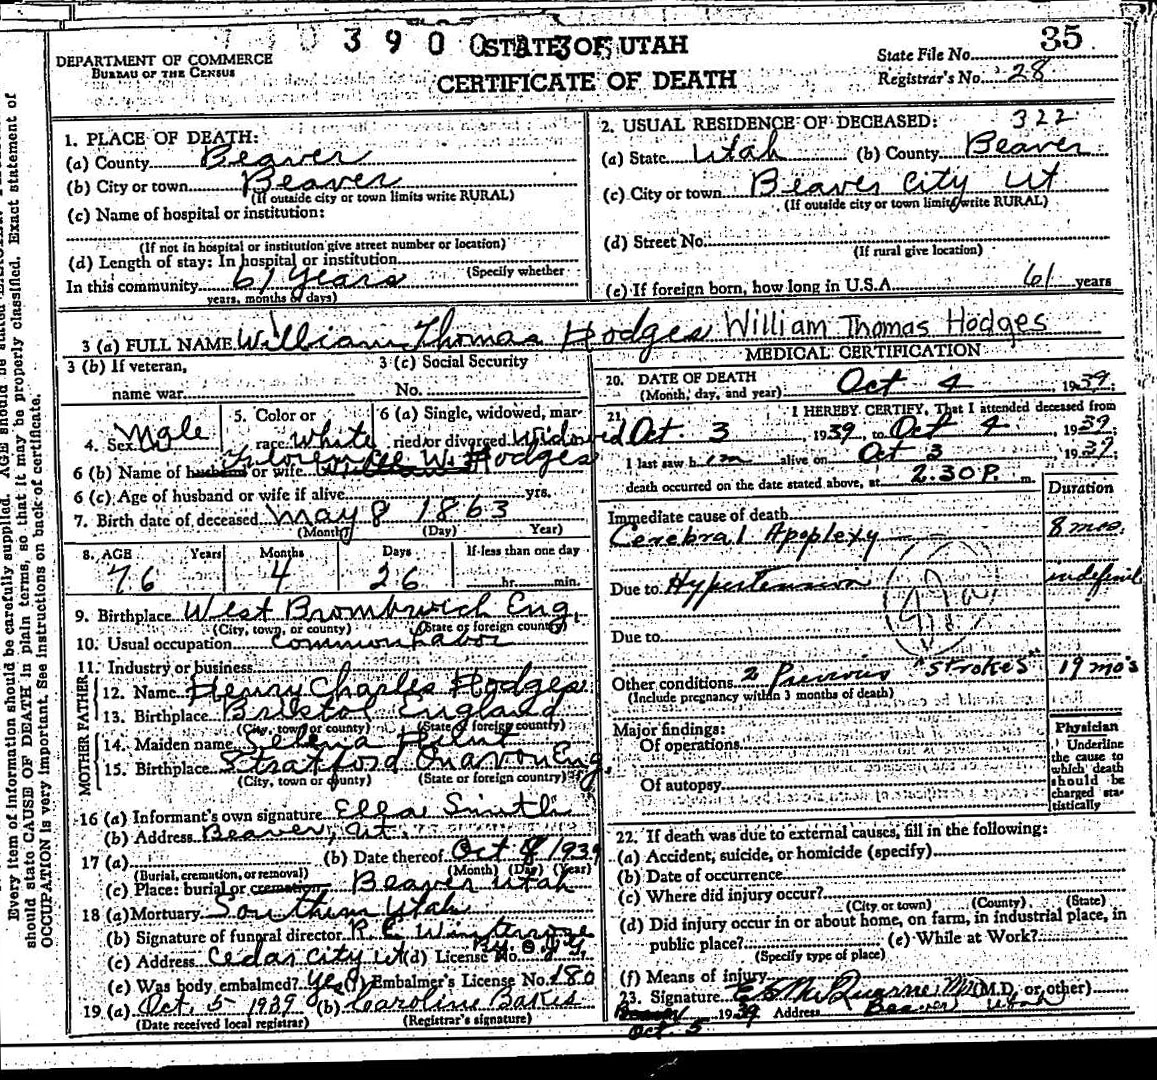 3 9 0 0 2 3 5
STATE OF UTAH
CERTIFICATE OF DEATH
DEPARTMENT OF COMMERCE
BUREAU OF THE CENSUS
State File No. 35
Registrar's No. 28
1. PLACE OF DEATH:
(a) County Beaver
(b) City or town Beaver
(If outside city or town limits write RURAL)
(c) Name of hospital or institution:
(If not in hospital or institution give street number or location)
(d) Length of stay: In hospital or institution
(Specify whether
In this community 61 years
years, months or days)
2. USUAL RESIDENCE OF DECEASED: 322
(a) State Utah (b) County Beaver
(c) City or town Beaver City Ut
(If outside city or town limits write RURAL)
(d) Street No.
(If rural give location)
(e) If foreign born, how long in U.S.A. 61 years
3 (a) FULL NAME William Thomas Hodges William Thomas Hodges
3 (b) If veteran, name war
3 (c) Social Security No.
4. Sex Male
5. Color or race White
6 (a) Single, widowed, married or divorced Widowed
6 (b) Name of husband or wife Florence W. Hodges
6 (c) Age of husband or wife if alive yrs.
7. Birth date of deceased May 8 1863
(Month) (Day) Year)
8. AGE Years Months Days If less than one day
76 4 26 hr. min.
9. Birthplace West Bromwich Eng.
(City, town, or county) (State or foreign country)
10. Usual occupation Common Labor
11. Industry or business
FATHER
12. Name Henry Charles Hodges
13. Birthplace Bristol England
(City, town or county) (State of foreign country)
MOTHER
14. Maiden name Selena
15. Birthplace Stratford Onavon Eng.
(City, town or county) (State or foreign country)
16 (a) Informant's own signature Ella Smith
(b) Address Beaver, Ut.
17 (a) (b) Date thereof Oct 8 1939
(Burial, cremation, or removal) (Month) (Day) (Year)
(c) Place: burial or cremation Beaver Utah
18 (a) Mortuary Southern Utah
(b) Signature of funeral director R. E.
(c) Address Cedar City Ut (d) License No.
(e) Was body embalmed? Yes (f) Embalmer's License No. 180
19 (a) Oct. 5 1939 (b) Caroline Bakes
(Date received local registrar) (Registrar's signature)
MEDICAL CERTIFICATION
20. DATE OF DEATH Oct 4 1939;
(Month, day, and year)
21. I HEREBY CERTIFY, That I attended deceased from
Oct. 3, 1939, to Oct 4 1939;
I last saw him alive on Oct 3 1939;
death occurred on the date stated above, at 2.30 P. m.
Duration
Immediate cause of death
Cerebral Apoplexy 8 mos.
Due to Hypertension indefinit
Due to
Other conditions 2 Previous "Strokes" 19 mo's
(Include pregnancy within 3 months of death)
Major findings:
Of operations
Of autopsy
Physician
Underline the cause to which death should be charged statistically
22. If death was due to external causes, fill in the following:
(a) Accident, suicide, or homicide (specify)
(b) Date of occurrence
(c) Where did injury occur?
(City or town) (County) (State)
(d) Did injury occur in or about home, on farm, in industrial place, in
public place? (e) While at Work?
(Specify type of place)
(f) Means of injury
23. Signature (M.D. or other)
1939 Address Beaver Utah
Oct 5
Every item of information should be carefully supplied. AGE should be stated
should state CAUSE OF DEATH in plain terms, so that it may be properly classified. Exact statement of
OCCUPATION is very important. See instructions on back of certificate.